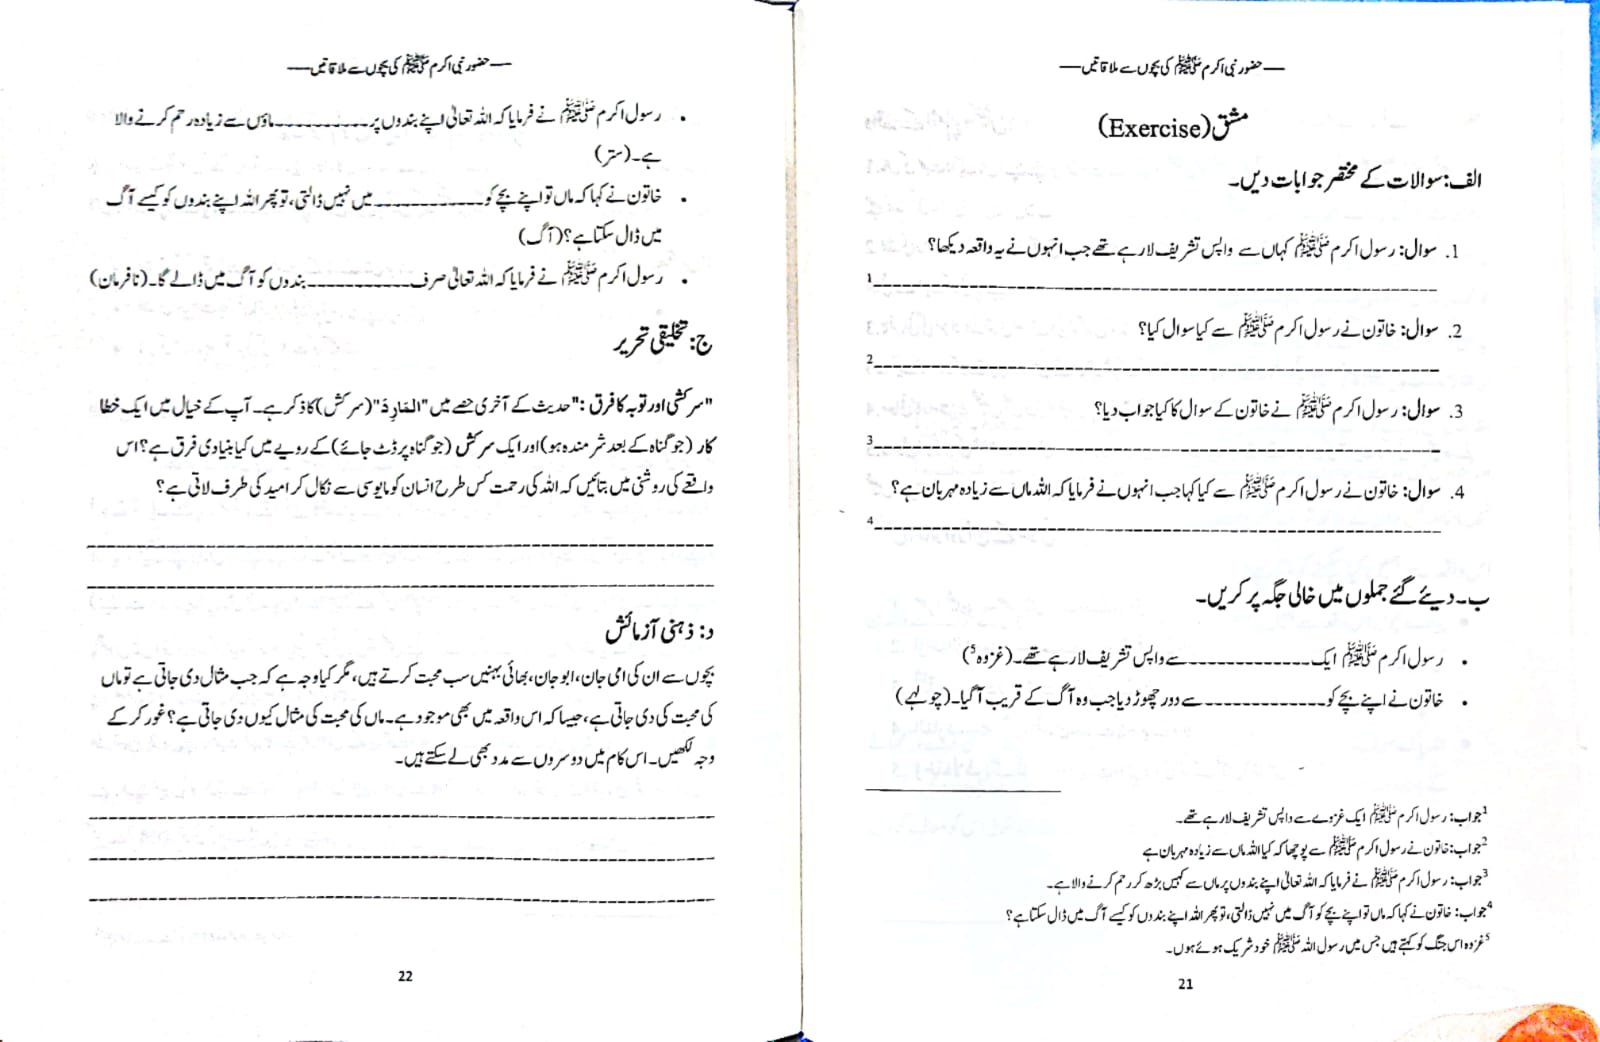 —حضور نبی اکرم ﷺ کی بچوں سے ملاقاتیں—
مشق (Exercise)
الف: سوالات کے مختصر جوابات دیں۔
1. سوال: رسول اکرم ﷺ کہاں سے واپس تشریف لا رہے تھے جب انہوں نے یہ واقعہ دیکھا؟
1
2. سوال: خاتون نے رسول اکرم ﷺ سے کیا سوال کیا؟
2
3. سوال: رسول اکرم ﷺ نے خاتون کے سوال کا کیا جواب دیا؟
3
4. سوال: خاتون نے رسول اکرم ﷺ سے کیا کہا جب انہوں نے فرمایا کہ اللہ ماں سے زیادہ مہربان ہے؟
4
ب۔ دیئے گئے جملوں میں خالی جگہ پر کریں۔
• رسول اکرم ﷺ ایک ------------ سے واپس تشریف لا رہے تھے۔ (غزوہ5)
• خاتون نے اپنے بچے کو ------------ سے دور چھوڑ دیا جب وہ آگ کے قریب آگیا۔ (چولہے)
1جواب: رسول اکرم ﷺ ایک غزوے سے واپس تشریف لا رہے تھے۔
2جواب: خاتون نے رسول اکرم ﷺ سے پوچھا کہ کیا اللہ ماں سے زیادہ مہربان ہے
3جواب: رسول اکرم ﷺ نے فرمایا کہ اللہ تعالیٰ اپنے بندوں پر ماں سے کہیں بڑھ کر رحم کرنے والا ہے۔
4جواب: خاتون نے کہا کہ ماں تو اپنے بچے کو آگ میں نہیں ڈالتی، تو پھر اللہ اپنے بندوں کو کیسے آگ میں ڈال سکتا ہے؟
5غزوہ اس جنگ کو کہتے ہیں جس میں رسول اللہ ﷺ خود شریک ہوئے ہوں۔
21
—حضور نبی اکرم ﷺ کی بچوں سے ملاقاتیں—
• رسول اکرم ﷺ نے فرمایا کہ اللہ تعالیٰ اپنے بندوں پر ---------- ماؤں سے زیادہ رحم کرنے والا
ہے۔ (ستر)
• خاتون نے کہا کہ ماں تو اپنے بچے کو ----------- میں نہیں ڈالتی، تو پھر اللہ اپنے بندوں کو کیسے آگ
میں ڈال سکتا ہے؟ (آگ)
• رسول اکرم ﷺ نے فرمایا کہ اللہ تعالیٰ صرف ----------- بندوں کو آگ میں ڈالے گا۔ (نافرمان)
ج: تخلیقی تحریر
"سرکشی اور توبہ کا فرق: "حدیث کے آخری حصے میں "المَارِدَ" (سرکش) کا ذکر ہے۔ آپ کے خیال میں ایک خطا
کار (جو گناہ کے بعد شرمندہ ہو) اور ایک سرکش (جو گناہ پر ڈٹ جائے) کے رویے میں کیا بنیادی فرق ہے؟ اس
واقعے کی روشنی میں بتائیں کہ اللہ کی رحمت کس طرح انسان کو مایوسی سے نکال کر امید کی طرف لاتی ہے؟
د: ذہنی آزمائش
بچوں سے ان کی امی جان، ابو جان، بھائی بہنیں سب محبت کرتے ہیں، مگر کیا وجہ ہے کہ جب مثال دی جاتی ہے تو ماں
کی محبت کی دی جاتی ہے، جیسا کہ اس واقعہ میں بھی موجود ہے۔ ماں کی محبت کی مثال کیوں دی جاتی ہے؟ غور کر کے
وجہ لکھیں۔ اس کام میں دوسروں سے مدد بھی لے سکتے ہیں۔
22